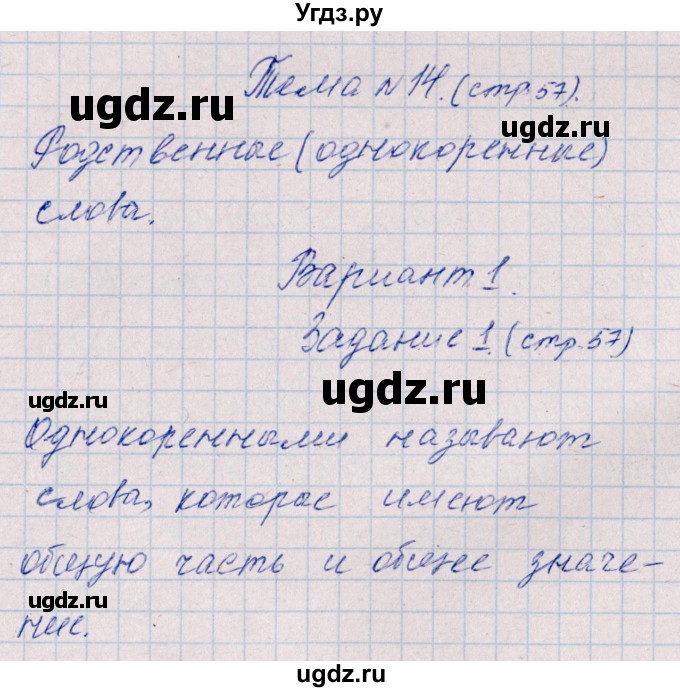 Угдз.ру
Тема №14. (стр. 57).
ugdz.ru
Родственные (однокоренные)
ugdz.ru
слова.
Вариант 1.
Задание 1. (стр. 57)
ugdz.ru
ugdz.ru
Однокоренными называют
слова, которые имеют
общую часть и общее значе-
ugdz.ru
ugdz.ru
ние.
ugdz.ru